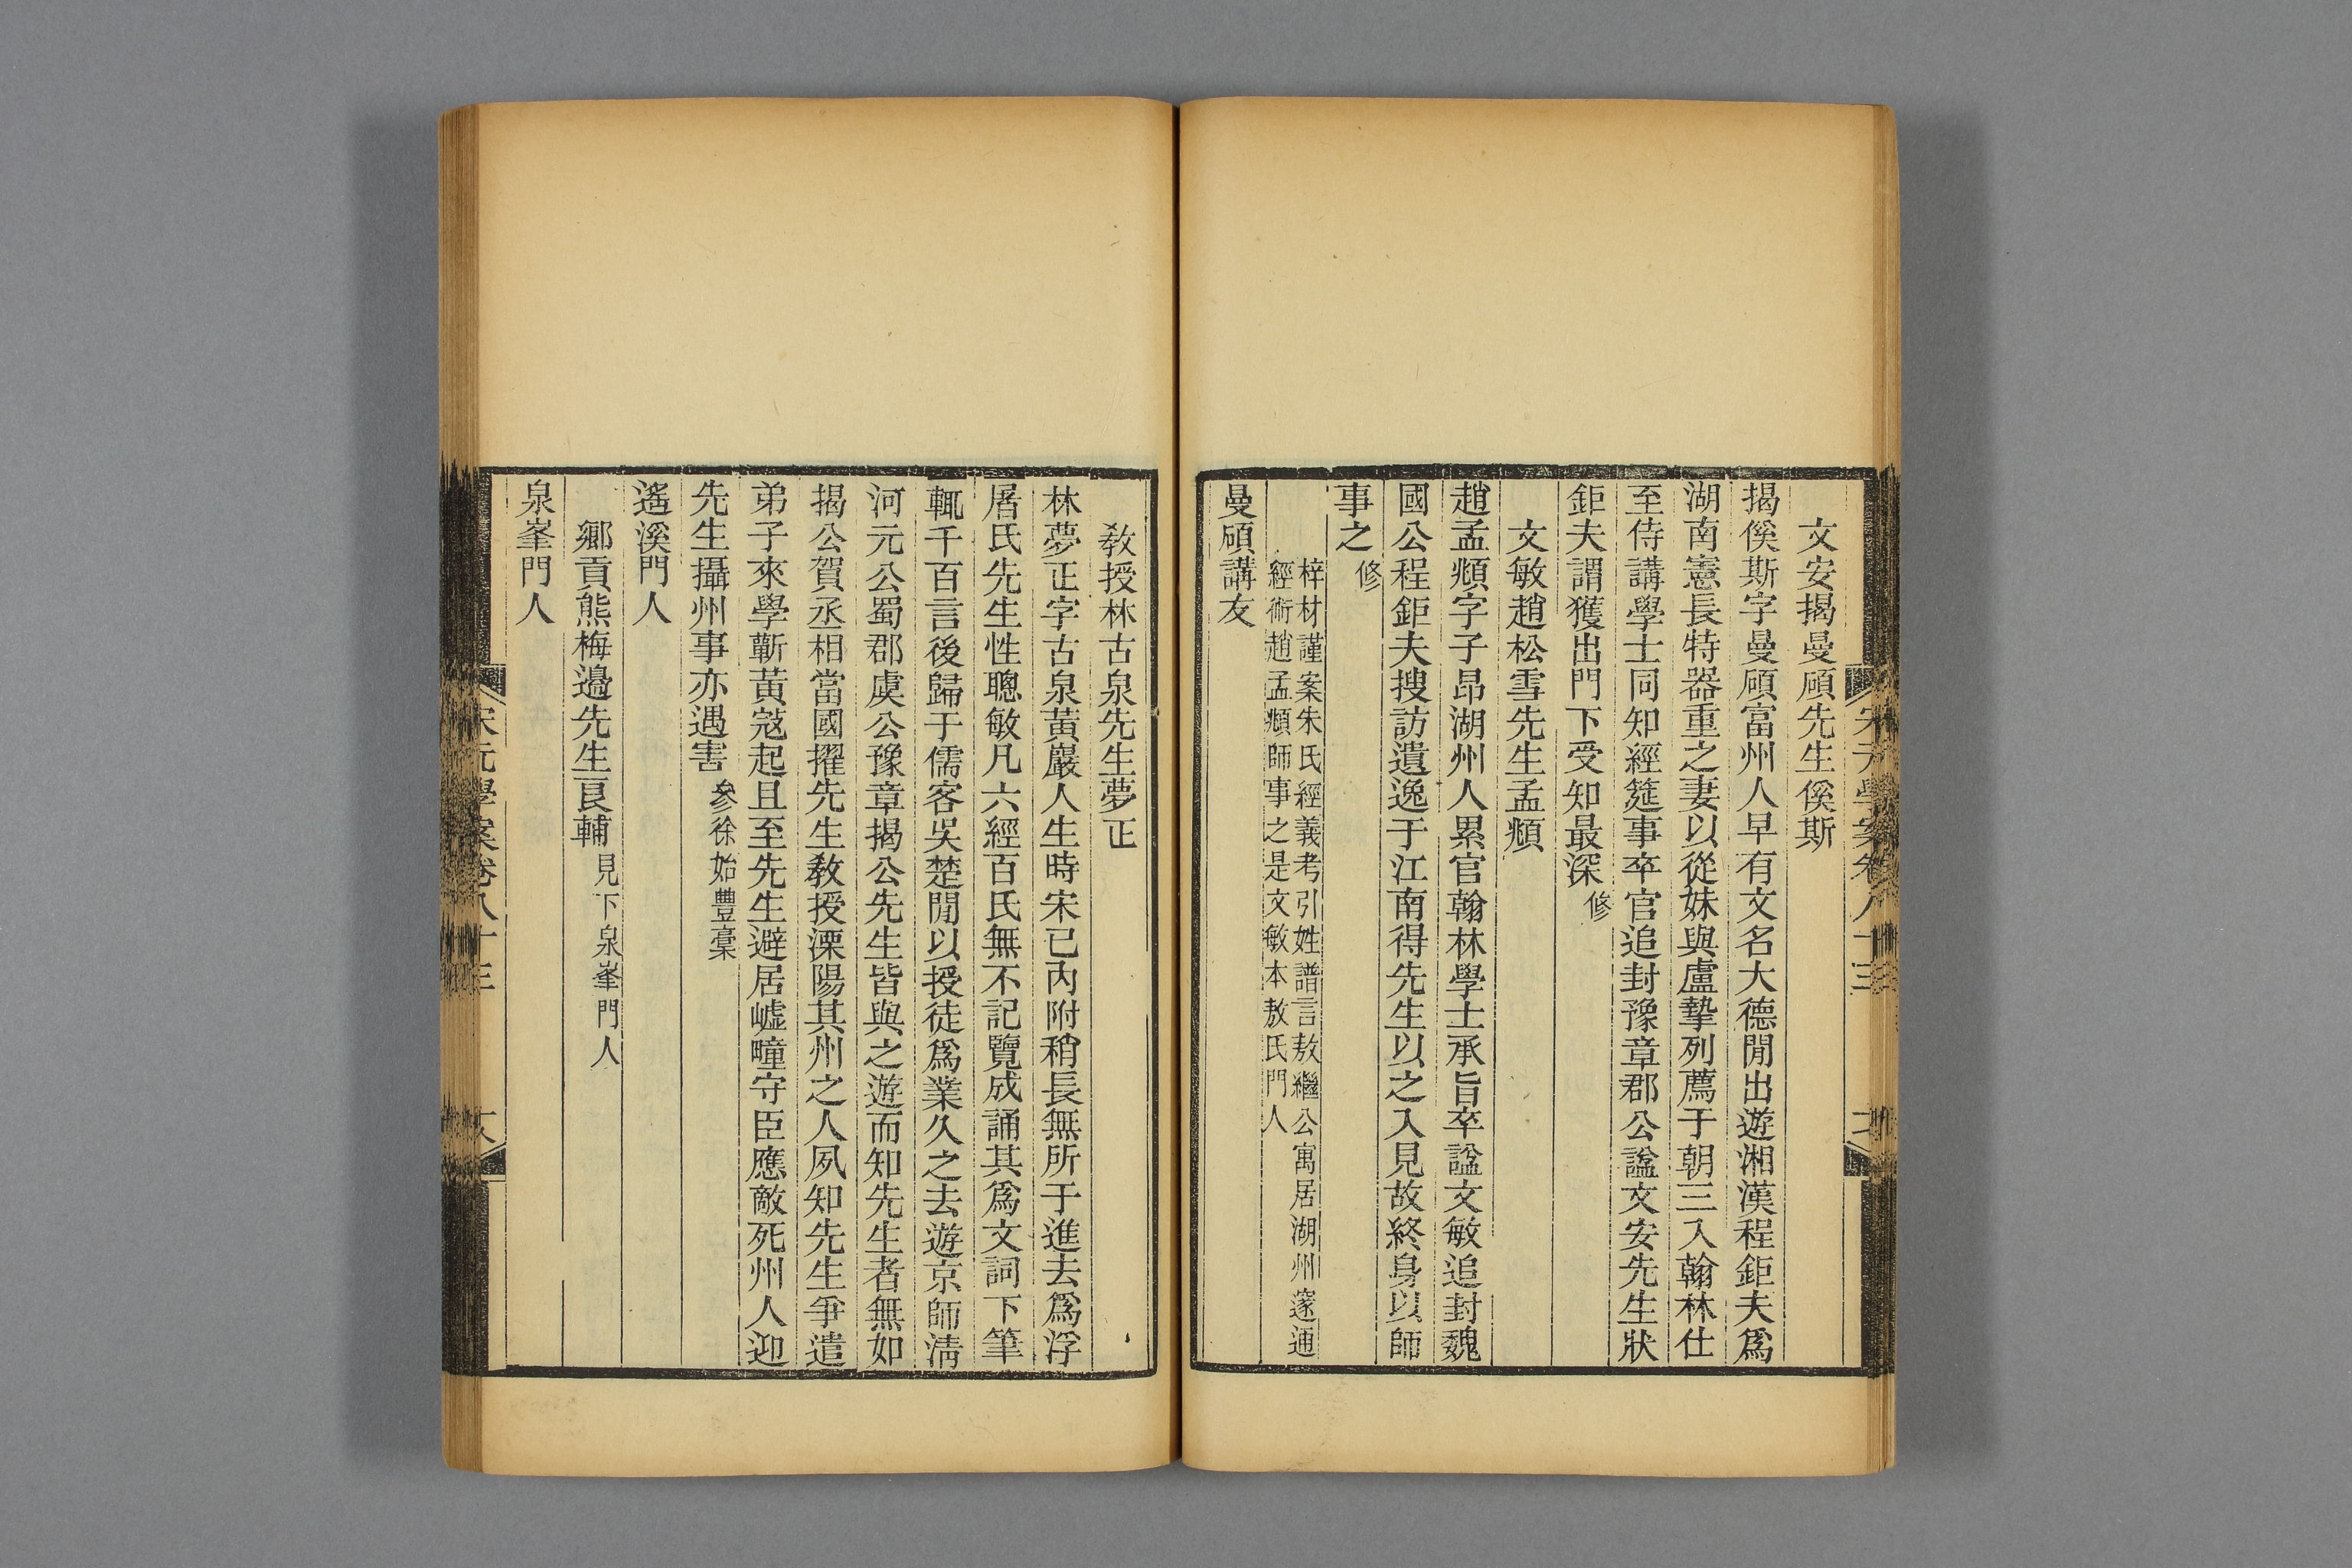 文安揭曼碩先生傒斯
揭傒斯字曼碩富州人早有文名大德閒出遊湘漢程鉅夫爲
湖南憲長特器重之妻以從妹與盧摯列薦于朝三入翰林仕
至侍講學士同知經筵事卒官追封豫章郡公諡文安先生狀
鉅夫謂獲出門下受知最深修
文敏趙松雪先生孟頫
趙孟頫字子昂湖州人累官翰林學士承旨卒諡文敏追封魏
國公程鉅夫搜訪遺逸于江南得先生以之入見故終身以師
事之修
梓材謹案朱氏經義考引姓譜言敖繼公寓居湖州邃通
經術趙孟頫師事之是文敏本敖氏門人
曼碩講友
敎授林古泉先生夢正
林夢正字古泉黃巖人生時宋已內附稍長無所于進去爲浮
屠氏先生性聰敏凡六經百氏無不記覽成誦其爲文詞下筆
輒千百言後歸于儒客吳楚閒以授徒爲業久之去遊京師淸
河元公蜀郡虞公豫章揭公先生皆與之遊而知先生者無如
揭公賀丞相當國擢先生敎授溧陽其州之人夙知先生爭遣
弟子來學蘄黃寇起且至先生避居嶟畽守臣應敵死州人迎
先生攝州事亦遇害參徐始豐槀
遙溪門人
鄉貢熊梅邊先生艮輔見下泉峯門人
泉峯門人
宋元學案卷八十三